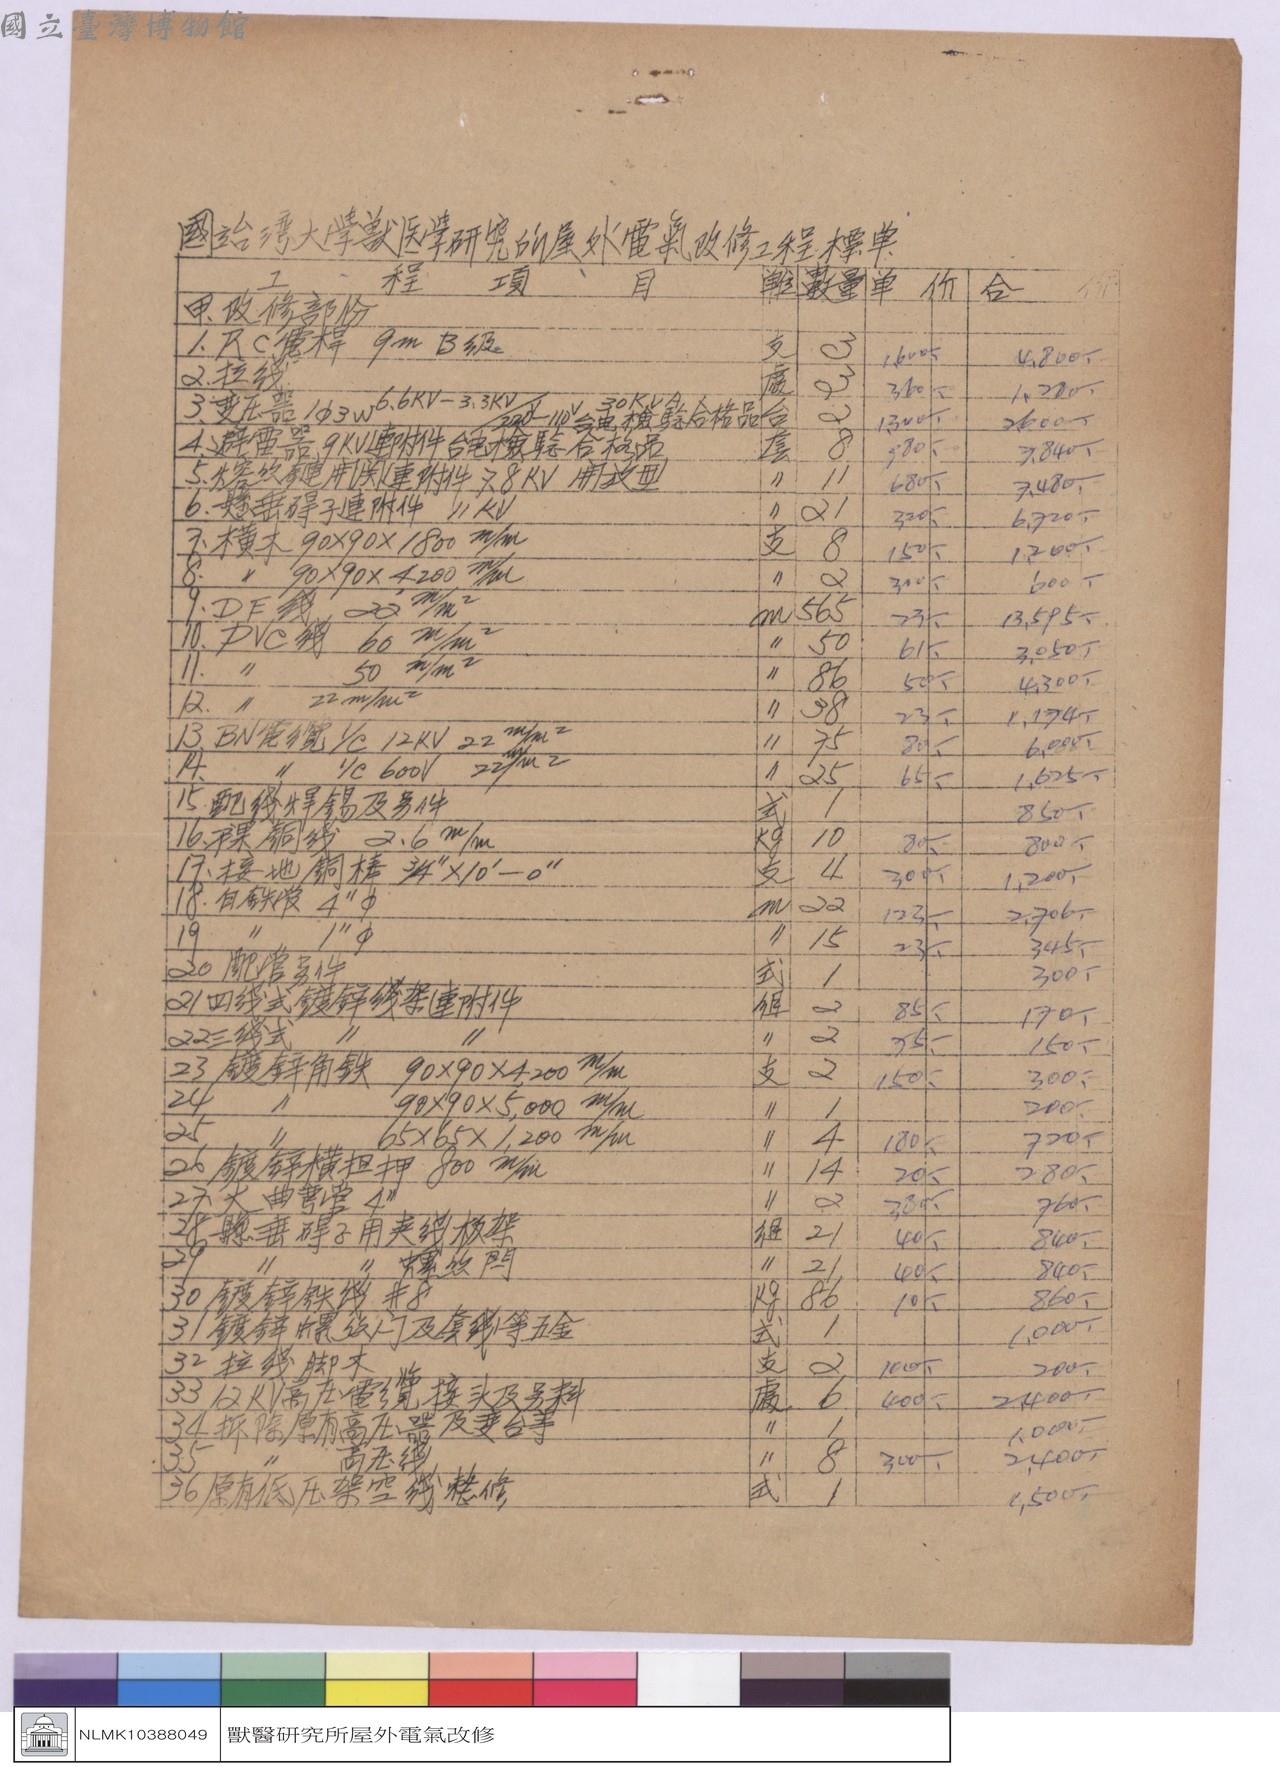 國立臺灣博物館
國立台湾大学獣医学研究所屋外電氣改修工程標單
工 程 項 目 單位 數量 单 价 合 价
甲.改修部份
1. RC電桿 9m B級 支 3 1,600 4,800
2. 拉线 處 3 360
3. 变压器 1φ3W 6.6KV-3.3KV 30KVA 110V 台電檢驗合格品 台 2 1300 2600
4. 避電器 9KV連附件台電檢驗合格品 套 8 3,840
5. 連附件 7.8KV 開放型 〃 11 680 7,480
6. 懸垂碍子連附件 11KV 〃 21 320 6,720
7. 横木 90×90×1800 m/m 支 8 150 1,200
8. 〃 90×90×4200 m/m 〃 2 300 600
9. DF线 22 m/m² m 565 23
10. PVC线 60 m/m² 〃 50 61 3,050
11. 〃 50 m/m² 〃 86 50 4,300
12. 〃 22 m/m² 〃 38 23
13. BN電纜 1/C 12KV 22 m/m² 〃 75 80
14. 〃 1/C 600V 22 m/m² 〃 25 65 1,625
15. 配线焊錫及另件 式 1 850
16. 裸銅线 2.6 m/m Kg 10 80 800
17. 接地銅棒 3/4"×10'-0" 支 4 300 1,200
18. 白鉄管 4"φ m 22 123 2,706
19 〃 1"φ 〃 15 23 345
20 配管另件 式 1 300
21 四线式镀锌线架連附件 組 2 85 170
22 三线式 〃 〃 〃 2 75 150
23 镀锌角鉄 90×90×4,200 m/m 支 2 150 300
24 〃 90×90×5,000 m/m 〃 1 200
25 〃 65×65×1,200 m/m 〃 4 180 720
26 镀锌横担押 800 m/m 〃 14 20 280
27 大曲弯管 4" 〃 2 380 760
28 懸垂碍子用夹线板架 組 21 40 840
29 〃 〃 螺丝閂 〃 21 40 840
30 镀锌鉄线 #8 Kg 86 10 860
31 镀锌螺丝门及套线等五金 式 1 1,000
32 拉线脚木 支 2 100 200
33 12KV高压電纜接头及另料 處 6 400 2,400
34 拆除原有高压器及变台等 〃 1 1,000
35 〃 高压线 〃 8 300 2,400
36 原有低压架空线整修 式 1 1,500
NLMK10388049 獸醫研究所屋外電氣改修